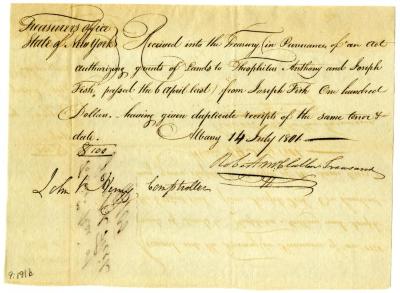 Treasurers Office
State of New York
Received into the Treasury (in Pursuance of an act
authorizing grants of Lands to Theophilus Anthony and Joseph
Fish, passed the 6 April last) from Joseph Fish One hundred
Dollars. having given duplicate receipts of the same tenor &
date.
Albany 14 July 1801.
$100
Robert McClallen Treasurer
John V. Henry Comptroller